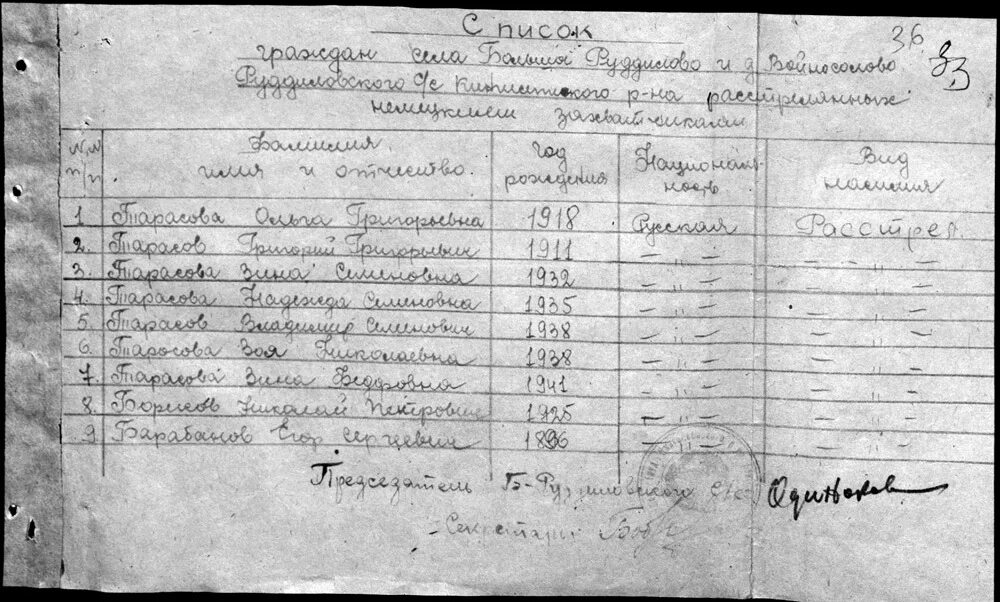 Список
36
33
граждан села Большое Руддилово и д. Войносолово
Руддиловского с/с Кингисепского р-на расстрелянных
немецкими захватчиками
N,N п/п Фамилия имя и отчество. Год рождения Националь-ность Вид насилия
1. Тарасова Ольга Григорьевна 1918 Русская Расстрел.
2. Тарасов Григорий Григорьевич 1911 — „ — — „ —
3. Тарасова Зина Семеновна 1932 — „ — — „ —
4. Тарасова Надежда Семеновна 1935 — „ — — „ —
5. Тарасов Владимир Семенович 1938 — „ — — „ —
6. Тарасова Зоя Николаевна 1938 — „ — — „ —
7. Тарасова Зина Федоровна 1941 — „ — — „ —
8. Борисов Николай Петрович 1925 — „ — — „ —
9. Барабанов Егор Сергеевич 1896 — „ — — „ —
Председатель Б-Руддиловского с/с Одиноков
Секретарь